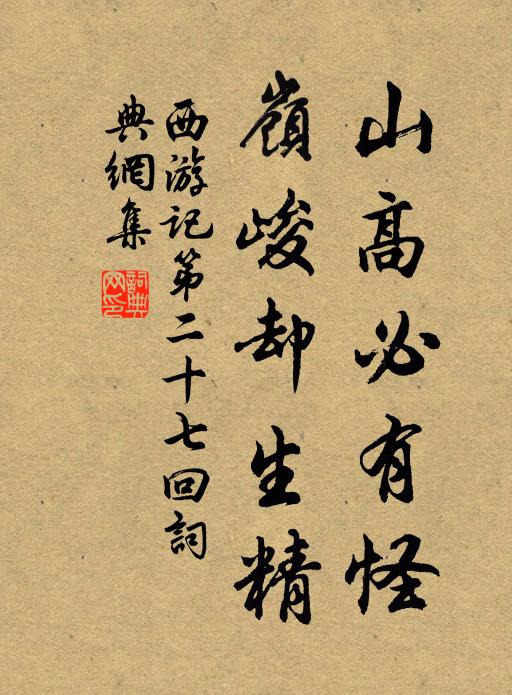 山高必有怪
嶺峻却生精
西游记第二十七回詞
典網集
詞典网印